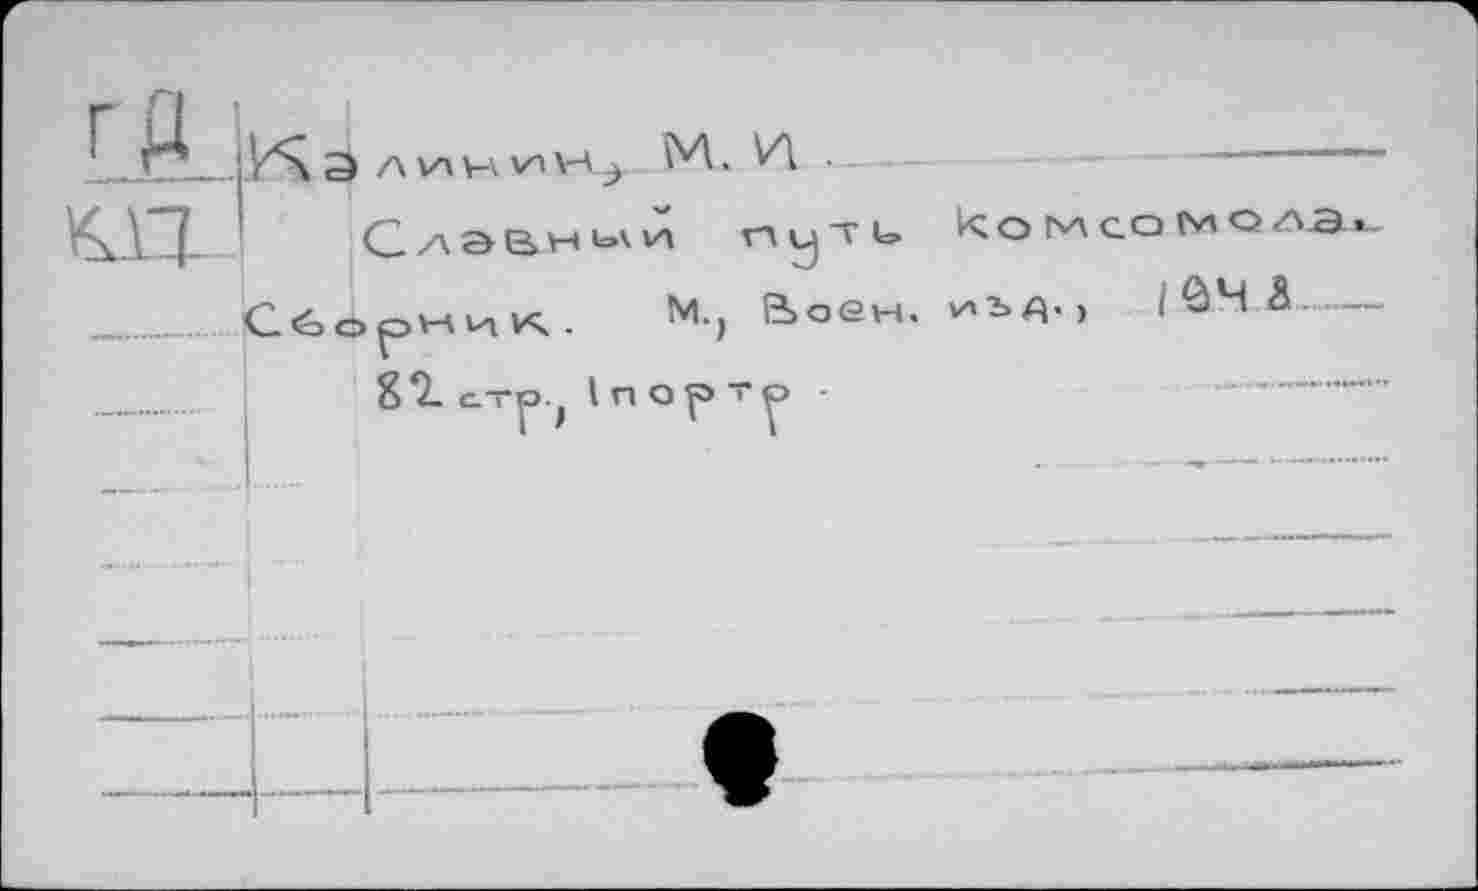 ГД Калинин, М. И.
КП Славный путь комсомола.
Сборник. М., Воен. изд., 1948
82 стр., 1 портр.